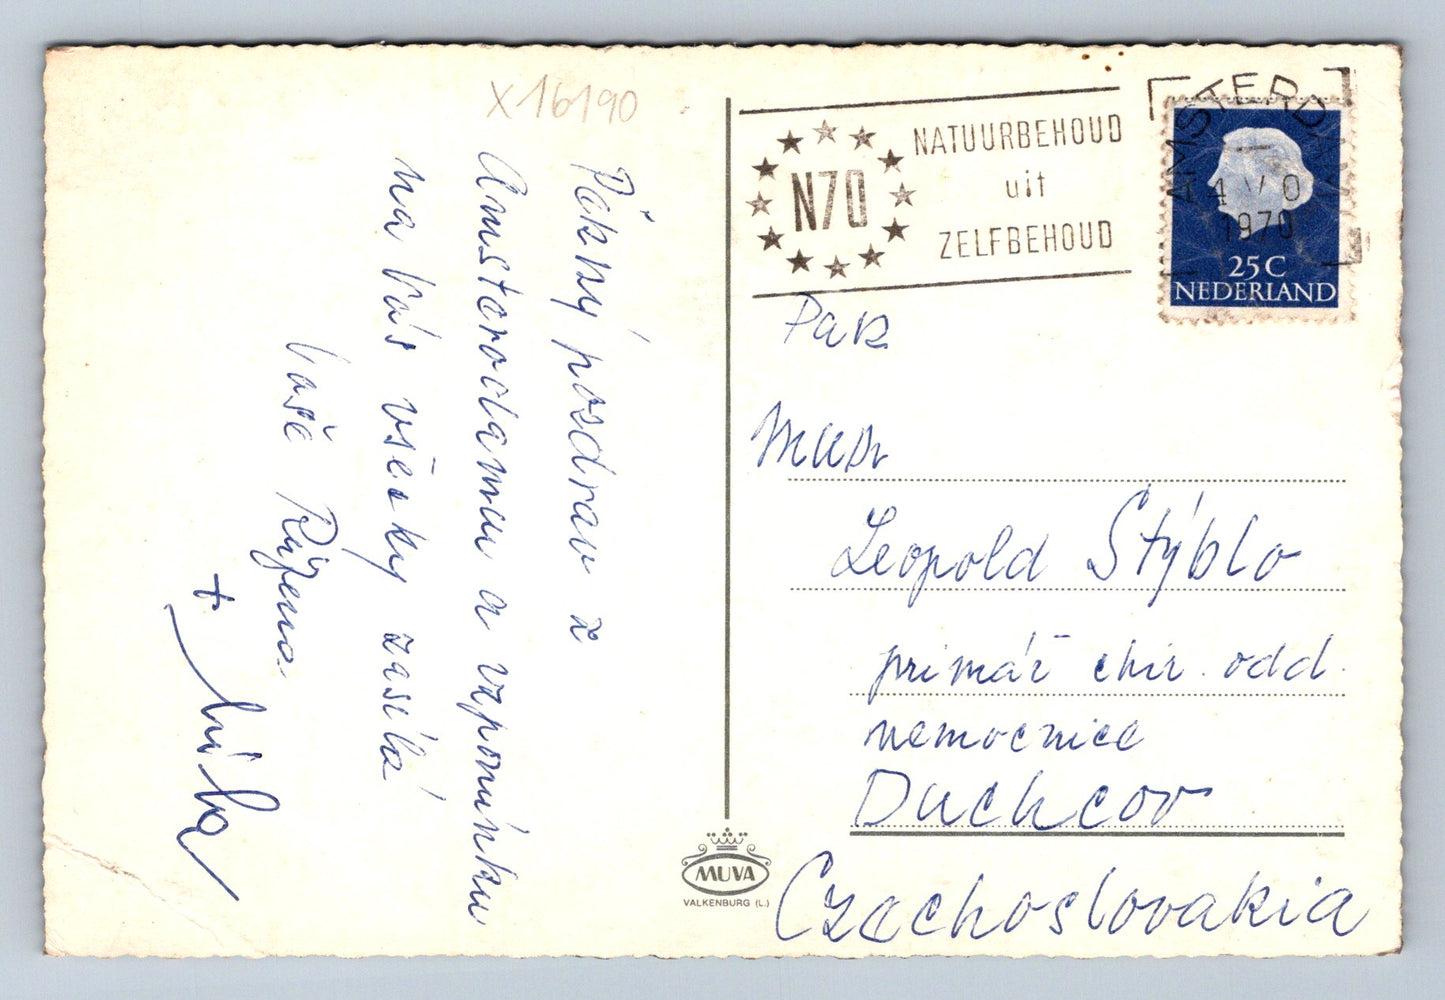 X16190
Pěkný pozdrav z
Amsterodamu a vzpomínku
na Vás všecky zasílá
Vaše Růžena
+
N70
NATUURBEHOUD
uit
ZELFBEHOUD
AMSTERDAM
1970
25C
NEDERLAND
Pan
MUDr
Leopold Stýblo
primář chir. odd.
nemocnice
Duchcov
Czechoslovakia
MUVA
VALKENBURG (L.)